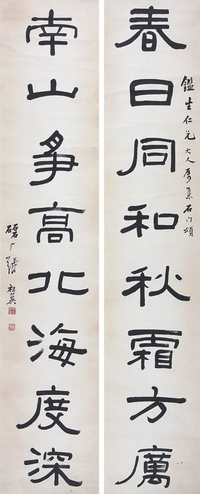 春日同和秋霜方厲
鑑生仁兄大人屬集石門頌
南山爭高北海度深
磊厂張祖翼